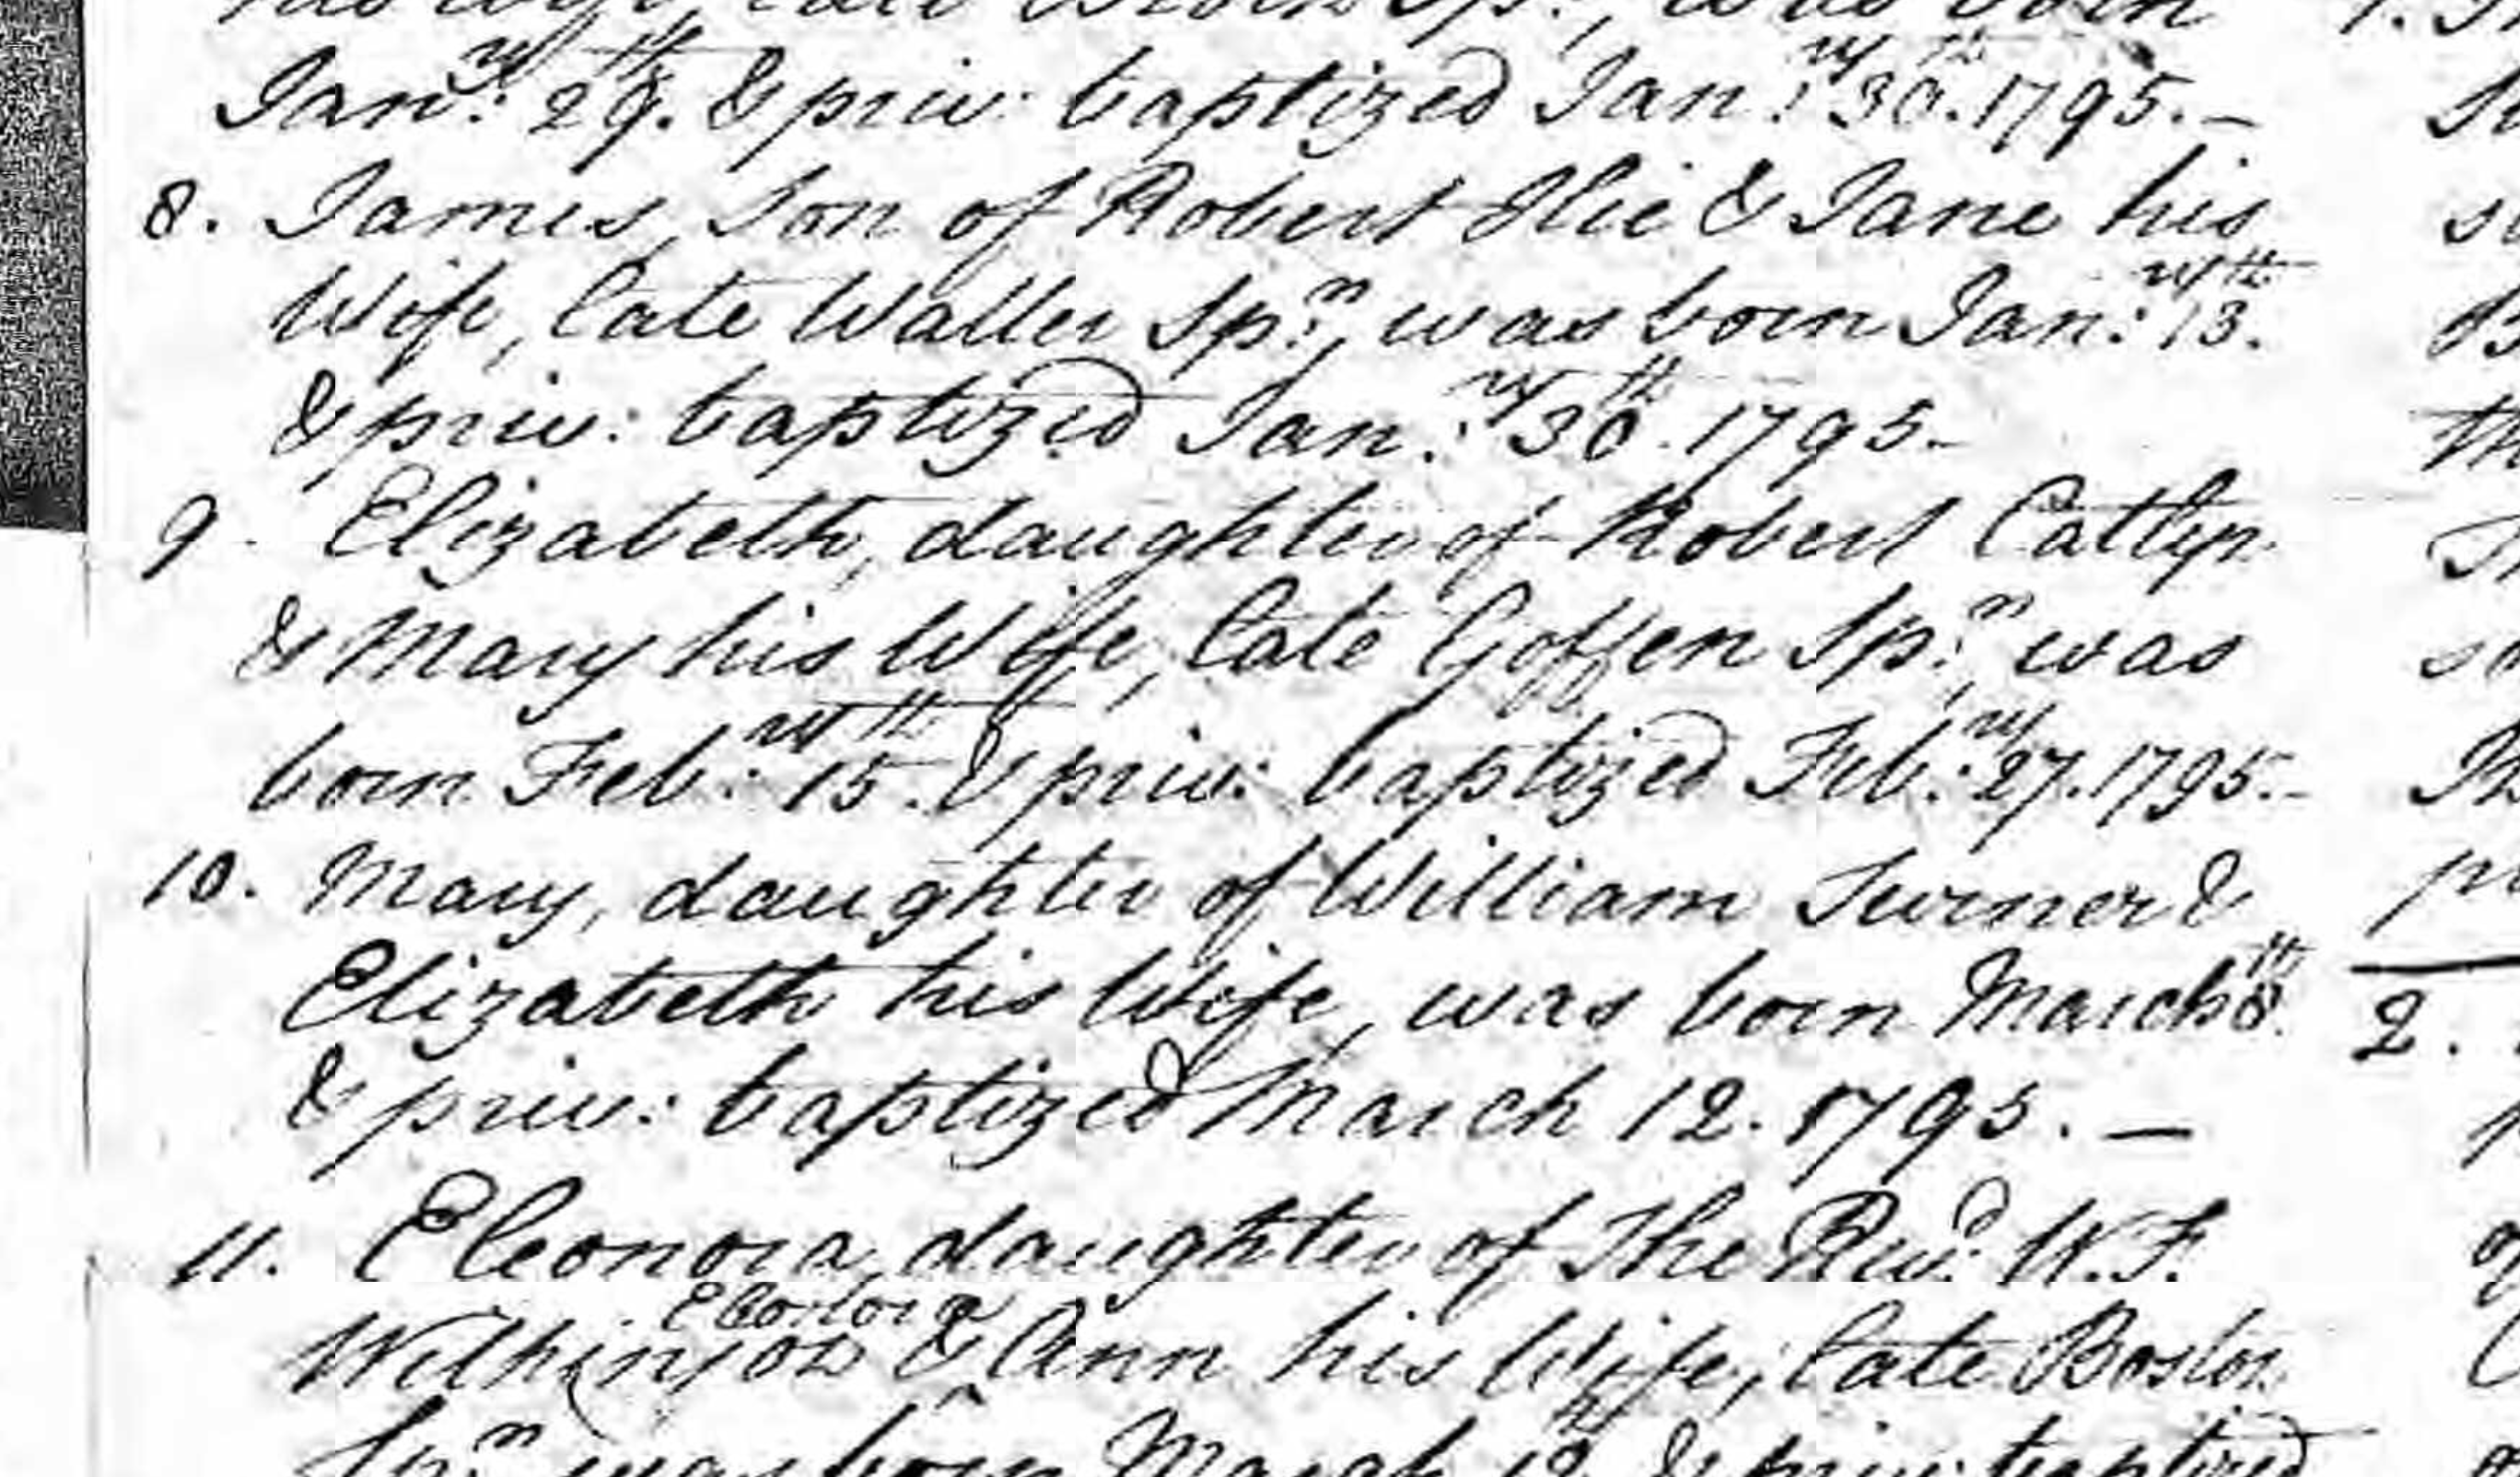 his wife, late Brown Spn, was born
Janry: 29th. & priv: baptized Janry: 30th. 1795.—
8. James, Son of Robert Ilie & Jane his
Wife, late Waller Spn:, was born Janry: 13th.
& priv: baptized Janry: 30th. 1795—
9. Elizabeth, daughter of Robert Catlyn
& Mary his Wife, late Goffen Spn:, was
born Febry: 15th. & priv: baptized Febry: 27. 1795.—
10. Mary, daughter of William Turner &
Elizabeth his Wife, was born March 8th.
& priv: baptized March 12. 1795.—
11. Eleonora, daughter of The Revd. W. F.
Eleonora
Wilkinson & Ann his Wife, late Boston
Spn: was born March 12 & priv: baptized
2.